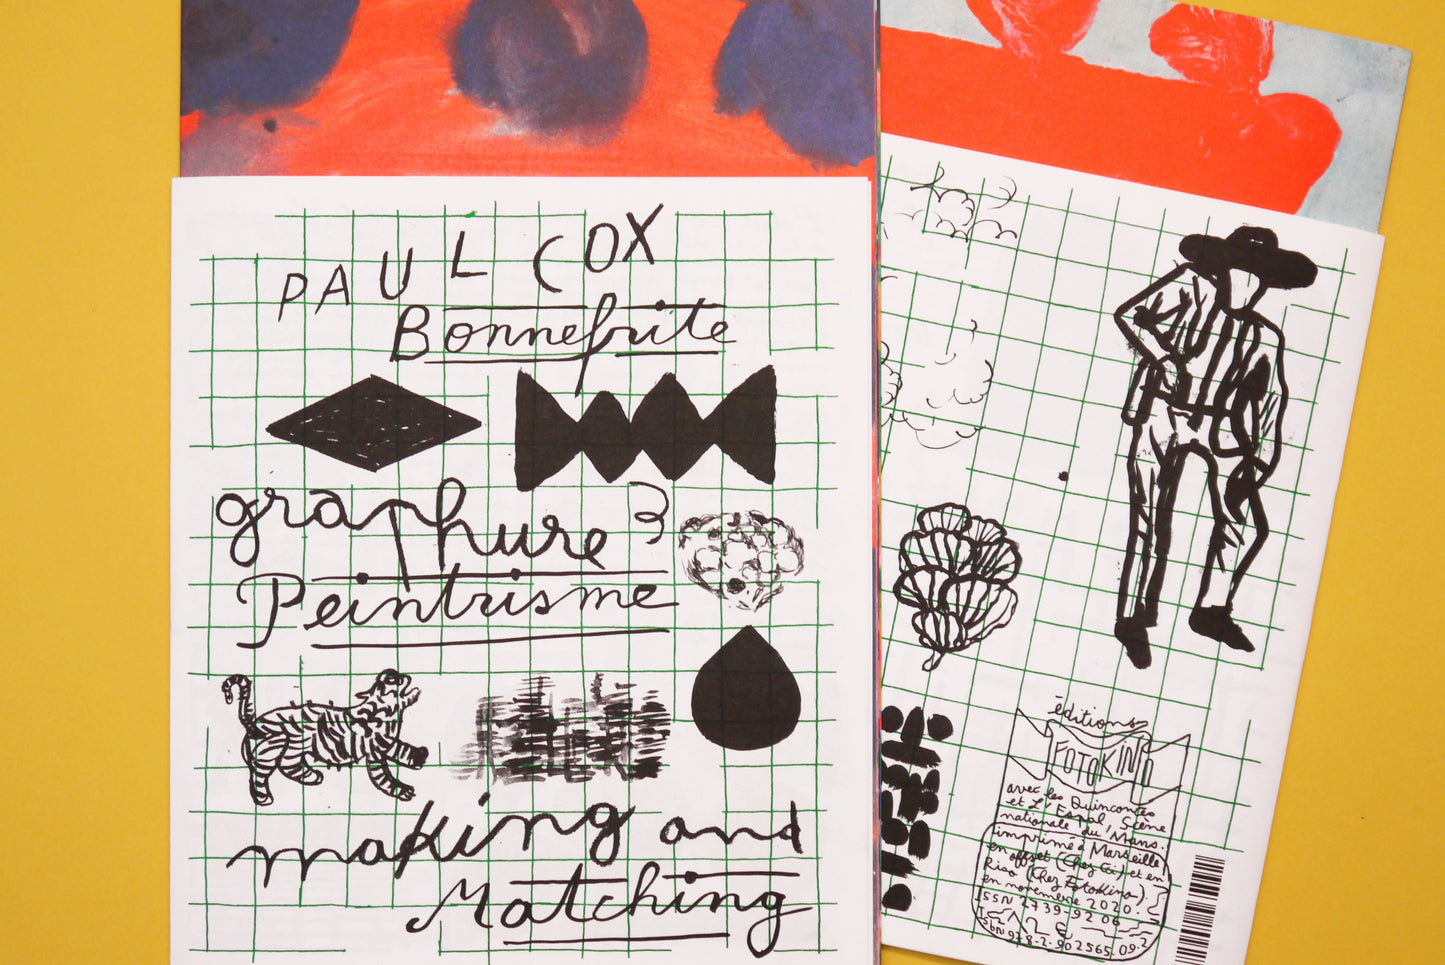 PAUL COX
Bonnefrite
graphure &
Peintrisme
making and
Matching
éditions
FOTOKINO
avec les Quinconces
et L'Espal, Scène
nationale du Mans.
imprimé à Marseille
en offset (chez CCI) et en
Riso (chez Fotokino)
en novembre 2020.
ISSN 2739-92 06
ISBN 978-2-902565.09.2